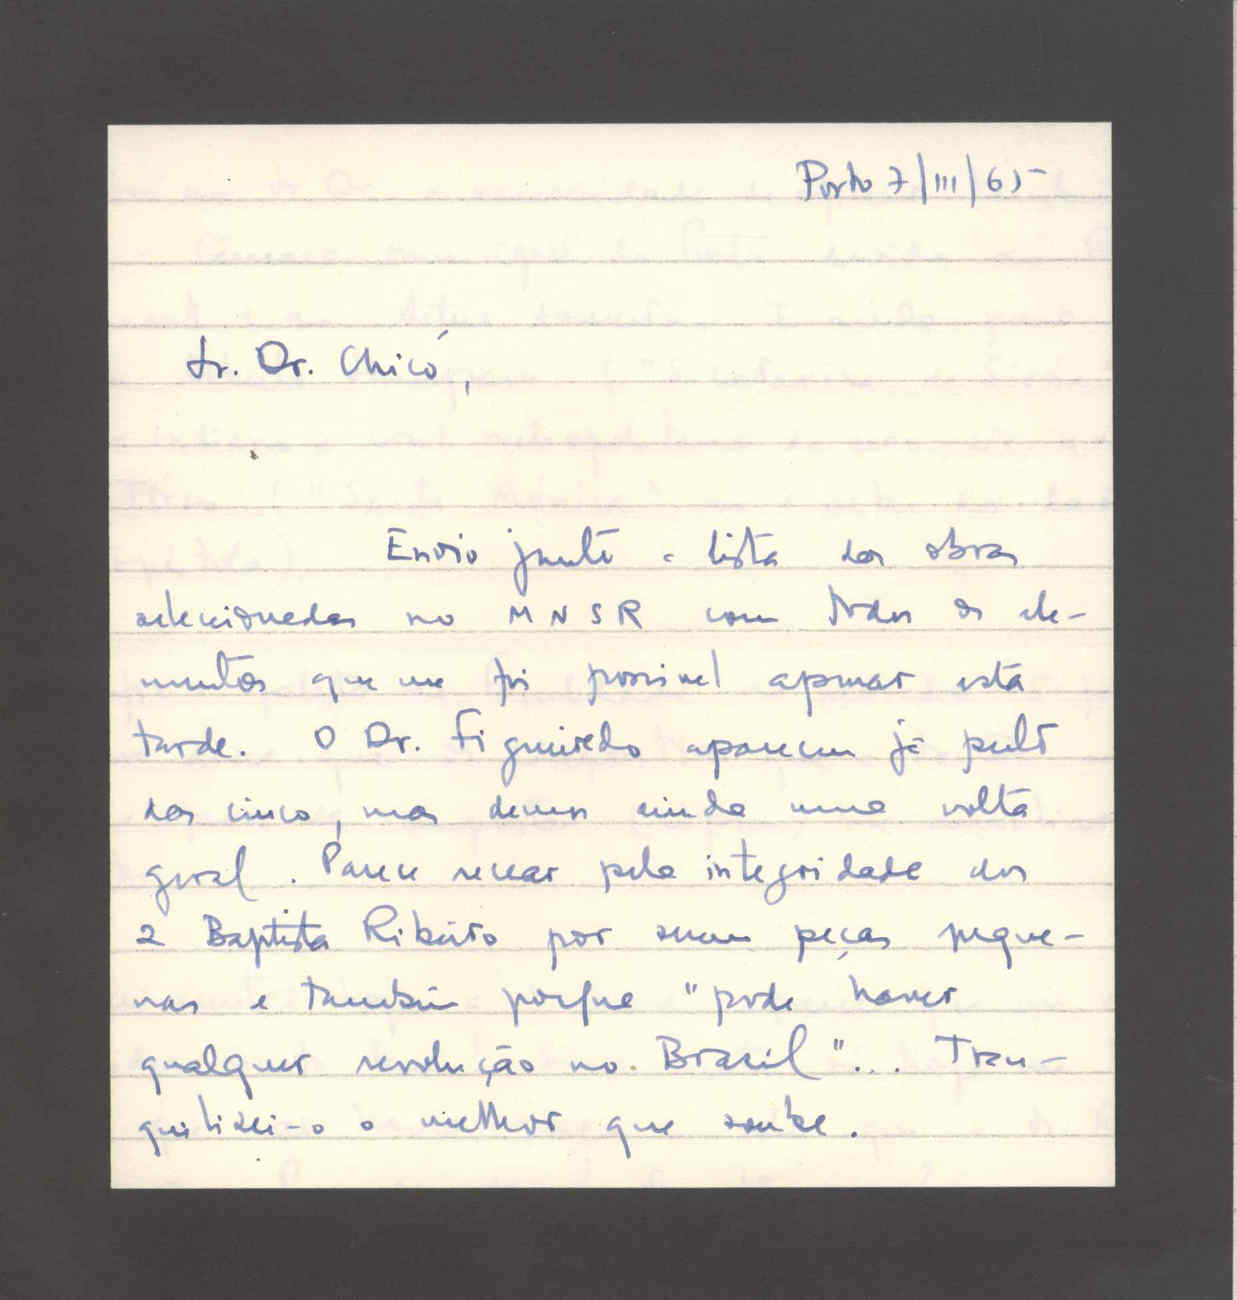 Porto 7/III/65
Sr. Dr. Chicó,
Envio junto a lista das obras
seleccionadas no MNSR com todos os ele-
mentos que me foi possivel apurar esta
tarde. O Dr. Figueiredo apareceu já perto
das cinco, mas demos ainda uma volta
geral. Parece recear pela integridade dos
2 Baptista Ribeiro por serem peças peque-
nas e também porque "pode haver
qualquer revolução no Brasil"... Tran-
quilizei-o o melhor que soube.